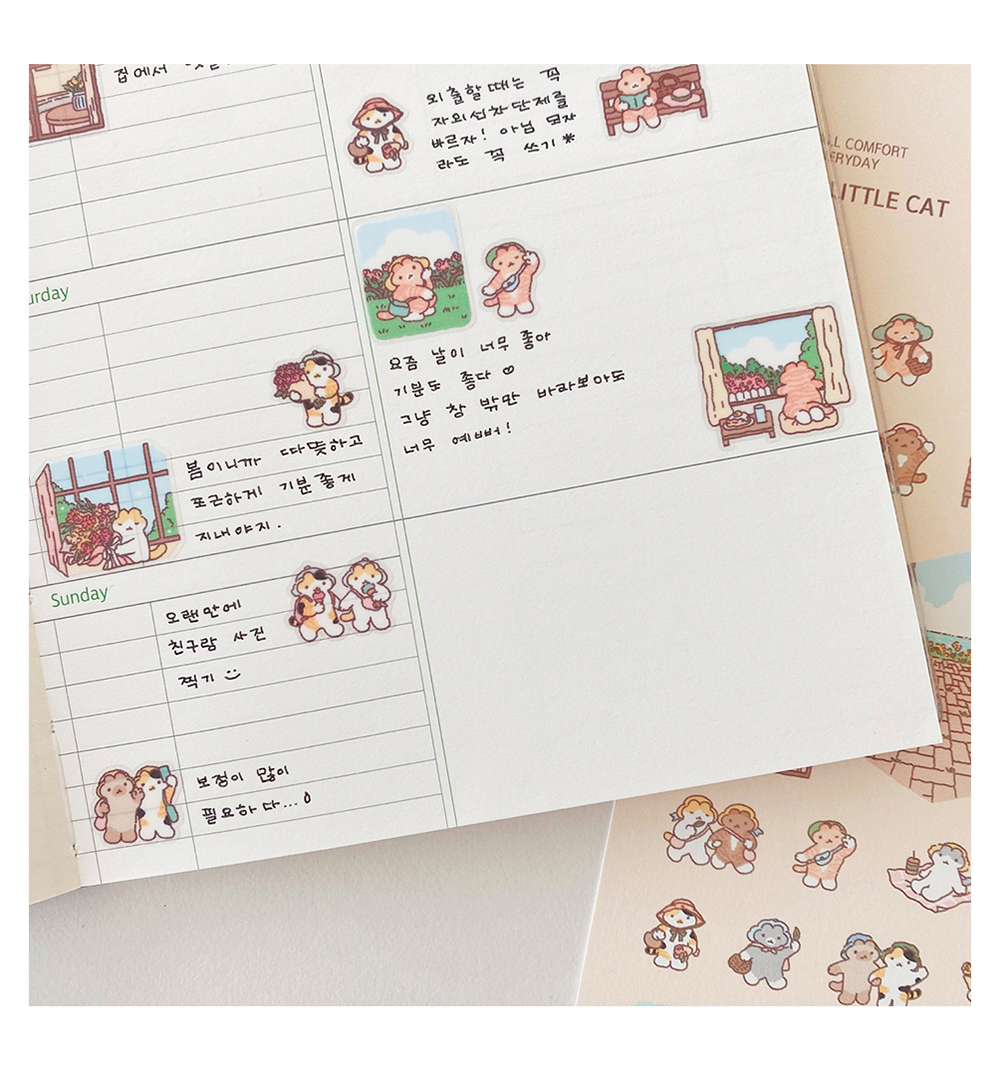 집에서
외출할 때는 꼭
자외선차단제를
바르자! 아님 모자
라도 꼭 쓰기*
urday
요즘 날이 너무 좋아
기분도 좋다♡
그냥 창 밖만 바라보아도
너무 예뻐!
봄이니까 따뜻하고
포근하게 기분좋게
지내야지.
Sunday
오랜만에
친구랑 사진
찍기
보정이 많이
필요하다...
LL COMFORT
ERYDAY
LITTLE CAT